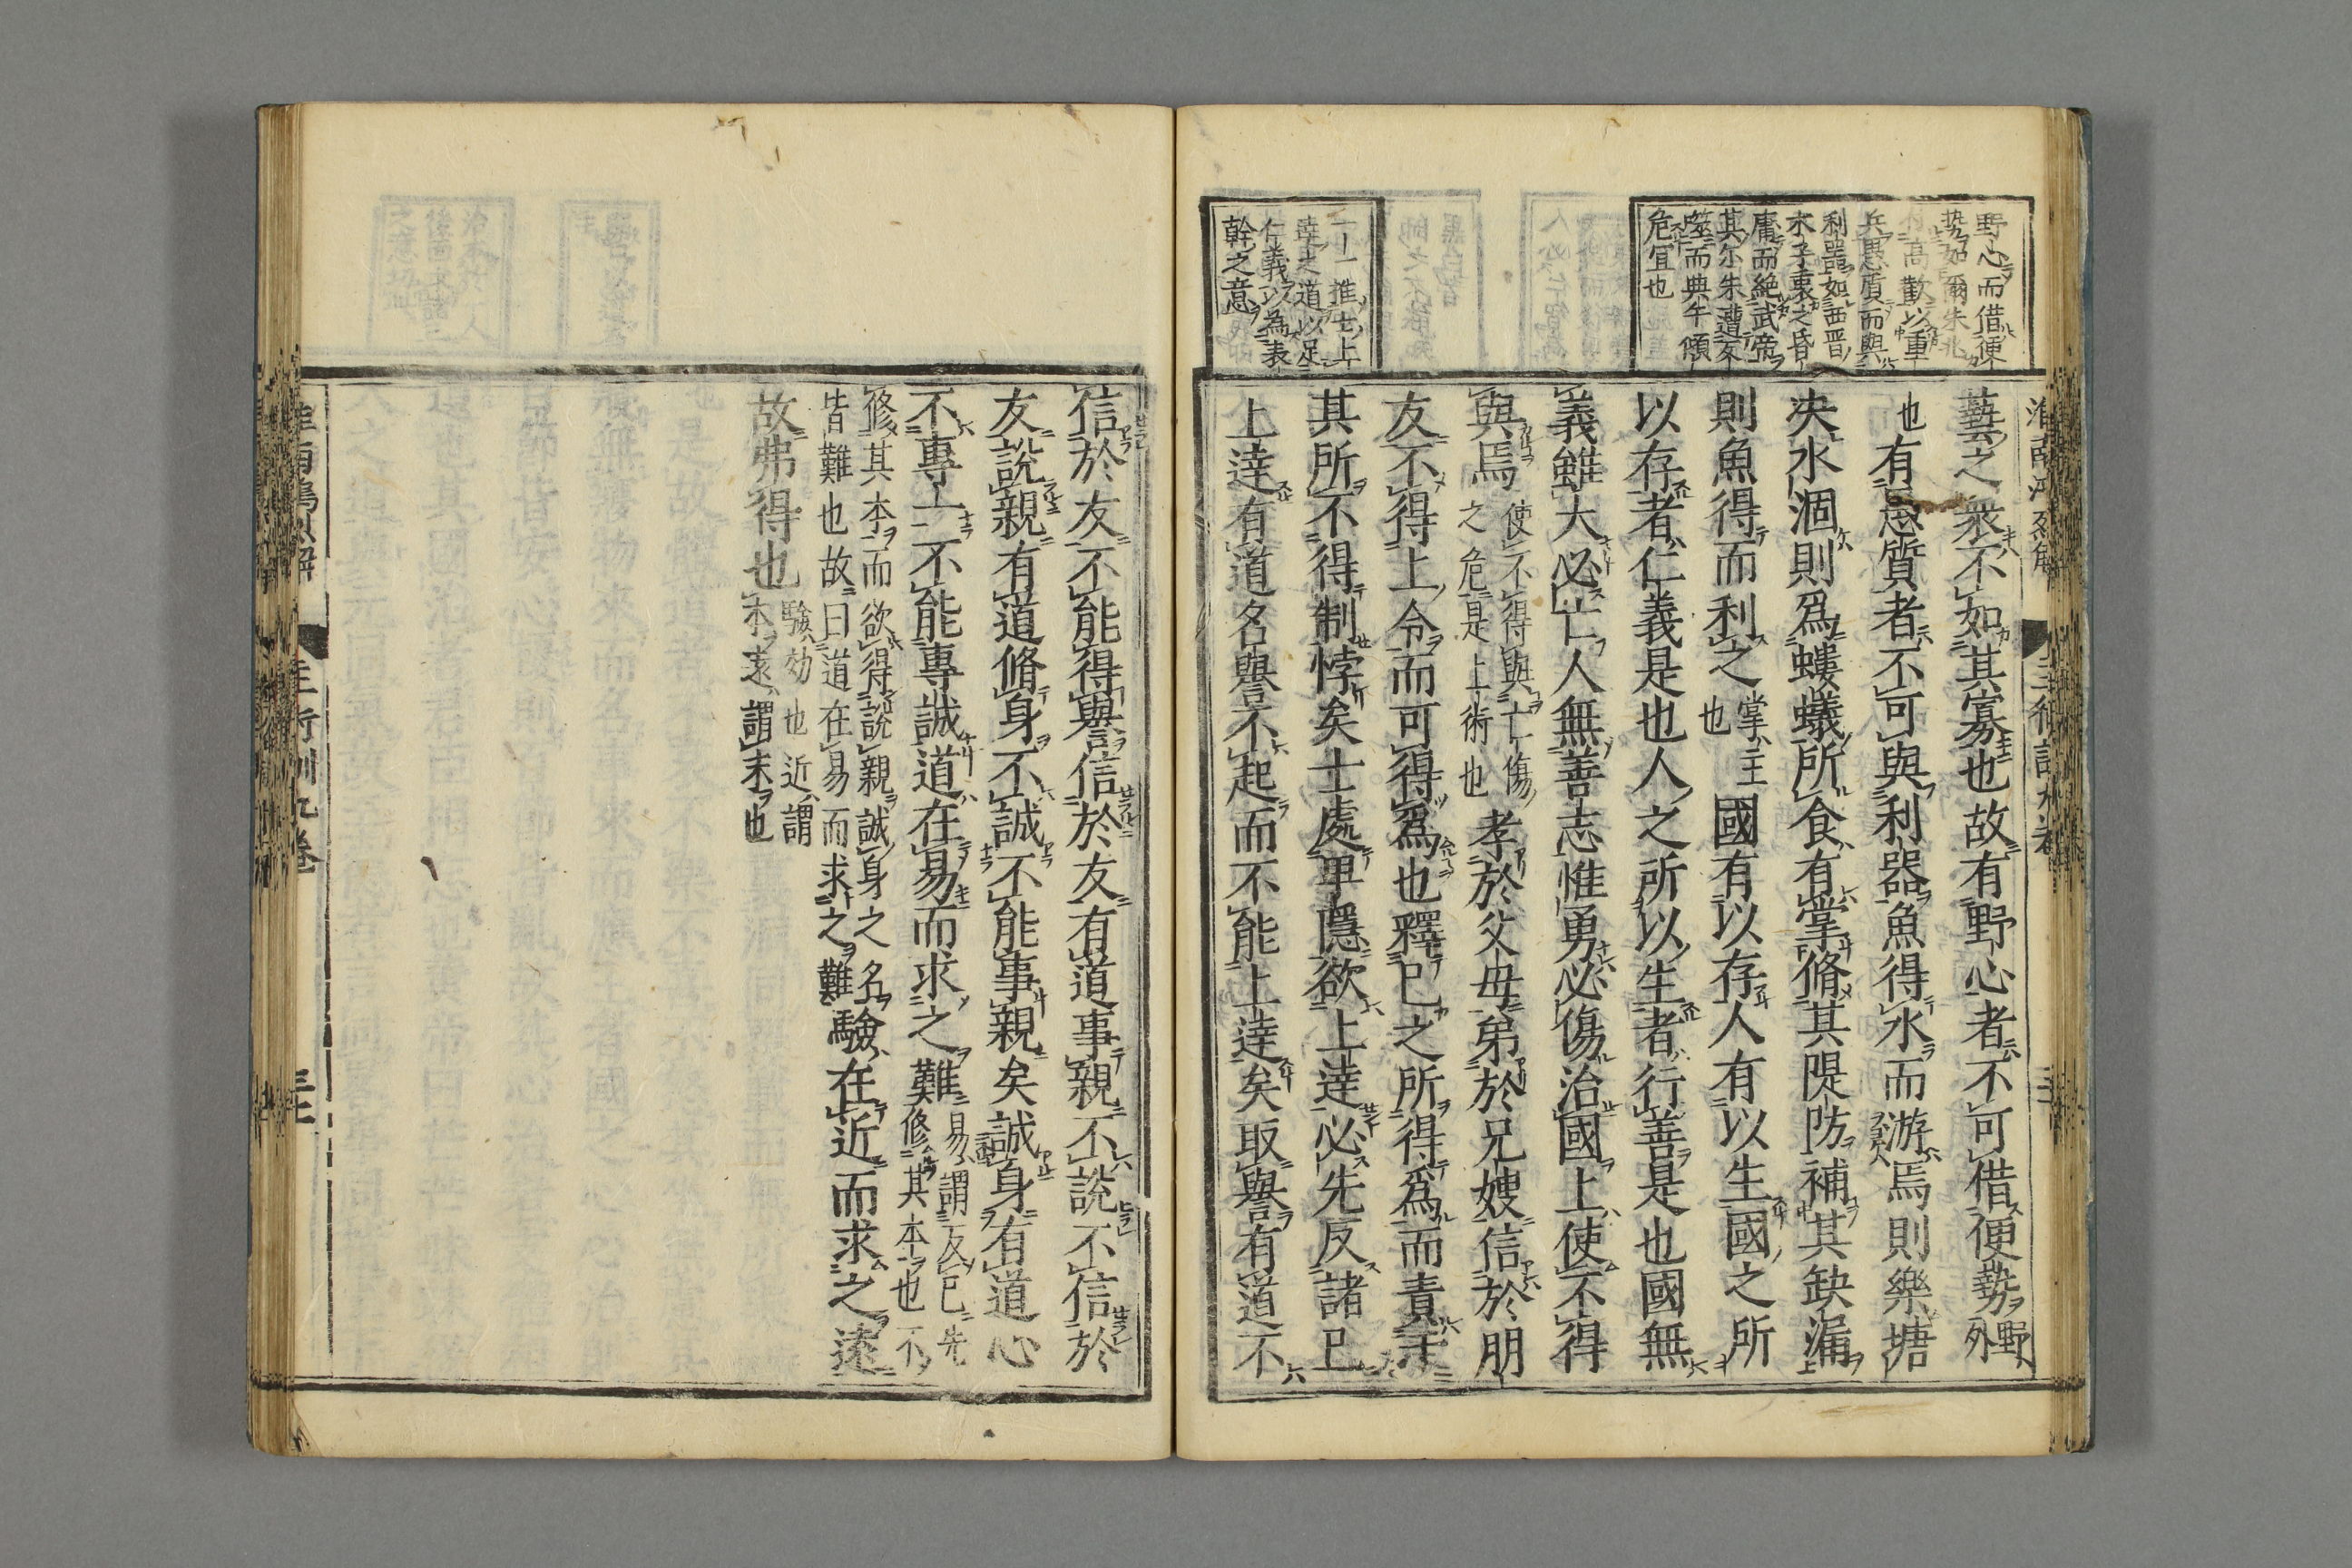 野心而借便
勢如爾朱兆
高歡以重
兵愚質而與
利器如西晋
惠之昏
庸而絶武帝
其尓朱遭反
噬而典午傾
危宜也
推士上
達之道以足
仁義以為表
幹之意
藝之衆不如其寡也故有野心者不可借便勢野外
也有愚質者不可與利器魚得水而游焉則樂塘
决水涸則爲螻蟻所食有掌脩其隄防補其缺漏
則魚得而利之掌主也國有以存人有以生國之所
以存者仁義是也人之所以生者行善是也國無
義雖大必亡人無善志惟勇必傷治國上使不得
與焉使不得與亡傷之危是上術也孝於父母弟於兄嫂信於朋
友不得上令而可得爲也釋已之所得爲而責于
其所不得制悖矣士處卑隱欲上達必先反諸已
上達有道名譽不起而不能上達矣取譽有道不
信於友不能得譽信於友有道事親不說不信於
友說親有道脩身不誠不能事親矣誠身有道心
不專一不能專誠道在易而求之難易謂反已先修其本也不
修其本而欲得說親誠身之名皆難也故曰道在易而求之難驗在近而求之遠
故弗得也驗効也近謂本遠謂末也
主術訓九卷